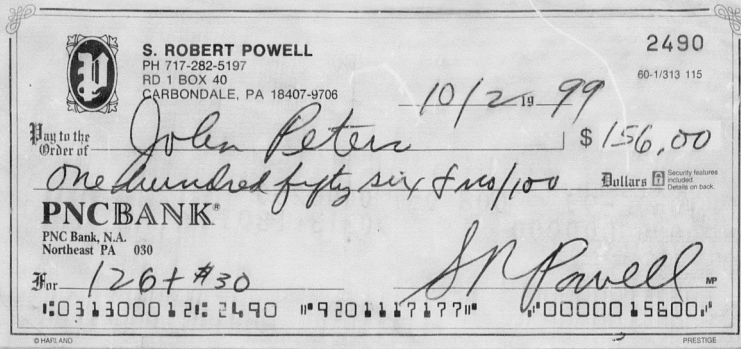 S. ROBERT POWELL
PH 717-282-5197
RD 1 BOX 40
CARBONDALE, PA 18407-9706
2490
60-1/313 115
10/2 19 99
Pay to the Order of John Peters $ 156.00
One hundred fifty six & no/100 Dollars
Security features included. Details on back.
PNCBANK®
PNC Bank, N.A.
Northeast PA 030
For 126 + #30 SR Powell MP
⑆031300012⑆ 2490 ⑈9201117177⑈ ⑈0000015600⑈
© HARLAND PRESTIGE